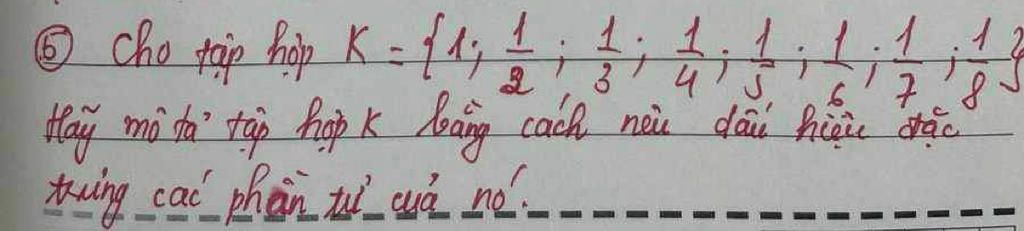 ⑤ Cho tập hợp K = {1; 1/2; 1/3; 1/4; 1/5; 1/6; 1/7; 1/8}
Hãy mô tả tập hợp K bằng cách nêu dấu hiệu đặc
trưng các phần tử của nó.